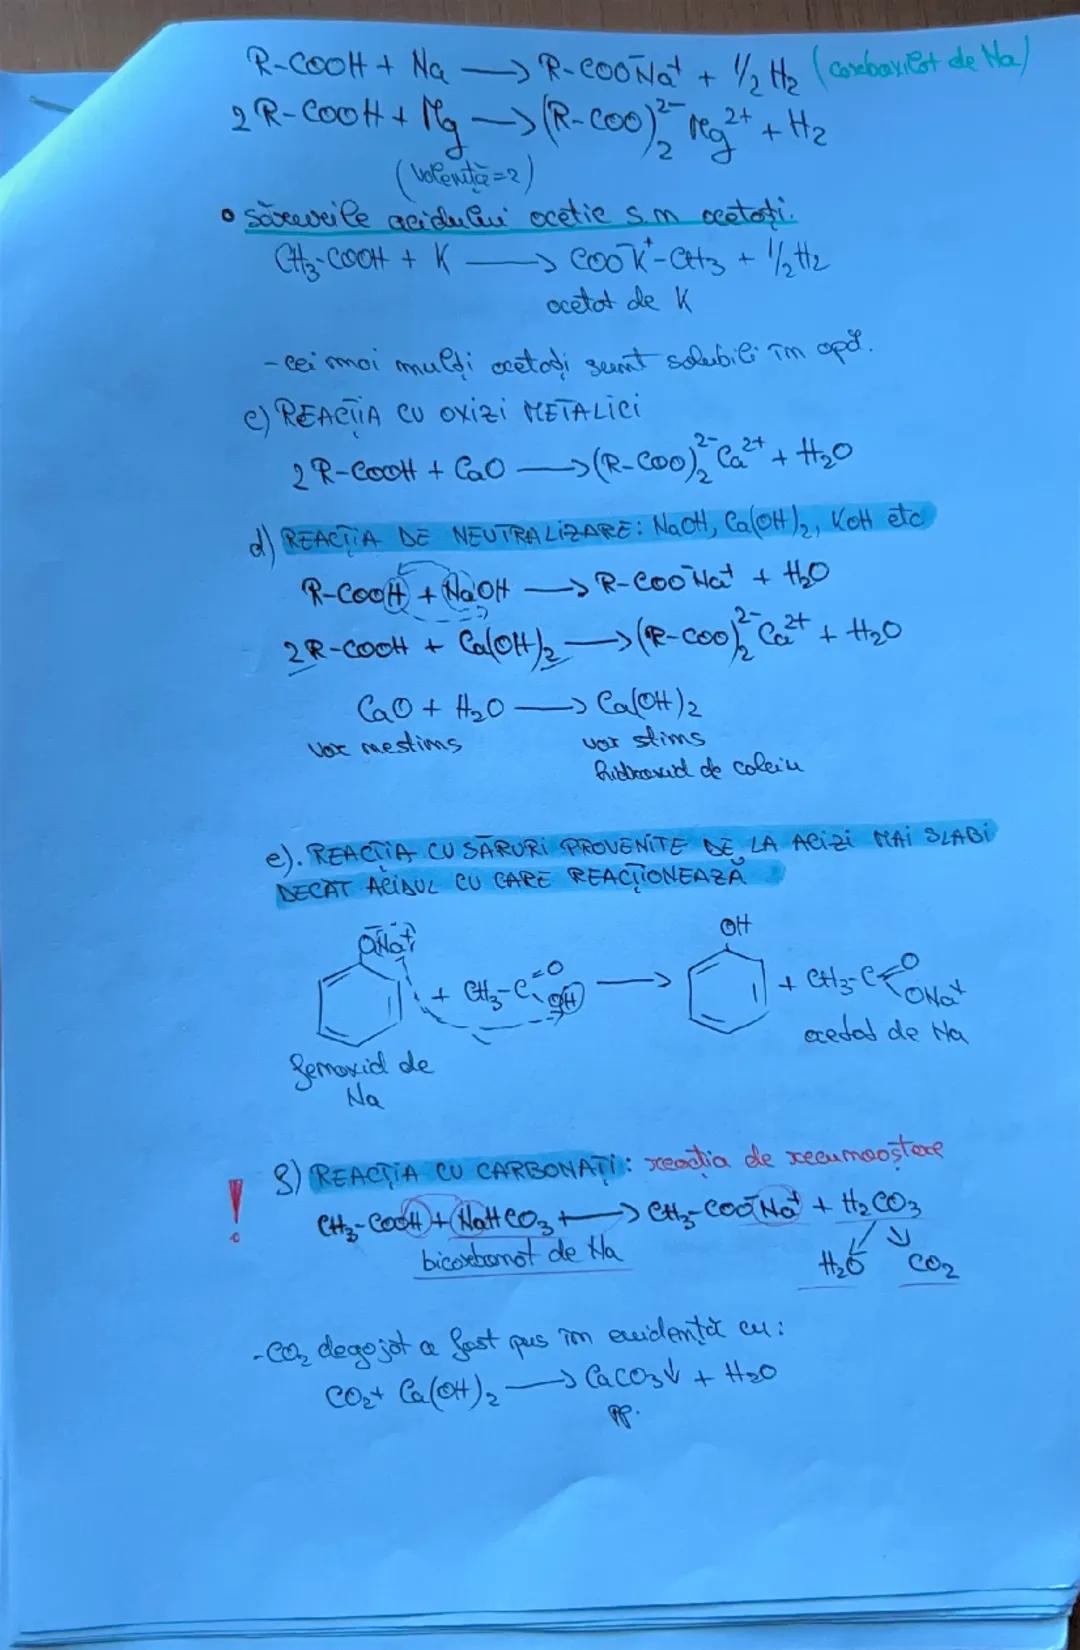 R-COOH + Na → R-COO⁻Na⁺ + 1/2 H₂ (carboxilat de Na)
2R-COOH + Mg → (R-COO)₂²⁻Mg²⁺ + H₂
(valență=2)
• sărurile acidului acetic s.m acetați.
CH₃-COOH + K → COO⁻K⁺-CH₃ + 1/2 H₂
acetat de K
- cei mai mulți acetați sunt solubili în apă.
c) REACȚIA CU OXIZI METALICI
2R-COOH + CaO → (R-COO)₂²⁻Ca²⁺ + H₂O
d) REACȚIA DE NEUTRALIZARE: NaOH, Ca(OH)₂, KOH etc
R-COOH + NaOH → R-COO⁻Na⁺ + H₂O
2R-COOH + Ca(OH)₂ → (R-COO)₂²⁻Ca²⁺ + H₂O
CaO + H₂O → Ca(OH)₂
var nestins var stins
hidroxid de calciu
e). REACȚIA CU SĂRURI PROVENITE DE LA ACIZI MAI SLABI
DECÂT ACIDUL CU CARE REACȚIONEAZĂ
O⁻Na⁺ + CH₃-C=O OH → OH + CH₃-C=O ONa⁺
fenoxid de acetat de Na
Na
! g) REACȚIA CU CARBONAȚI: reacția de recunoaștere
CH₃-COOH + NaHCO₃ + → CH₃-COO⁻Na⁺ + H₂CO₃
bicarbonat de Na H₂O CO₂
- CO₂ degajat a fost pus în evidență cu:
CO₂ + Ca(OH)₂ → CaCO₃↓ + H₂O
pp.